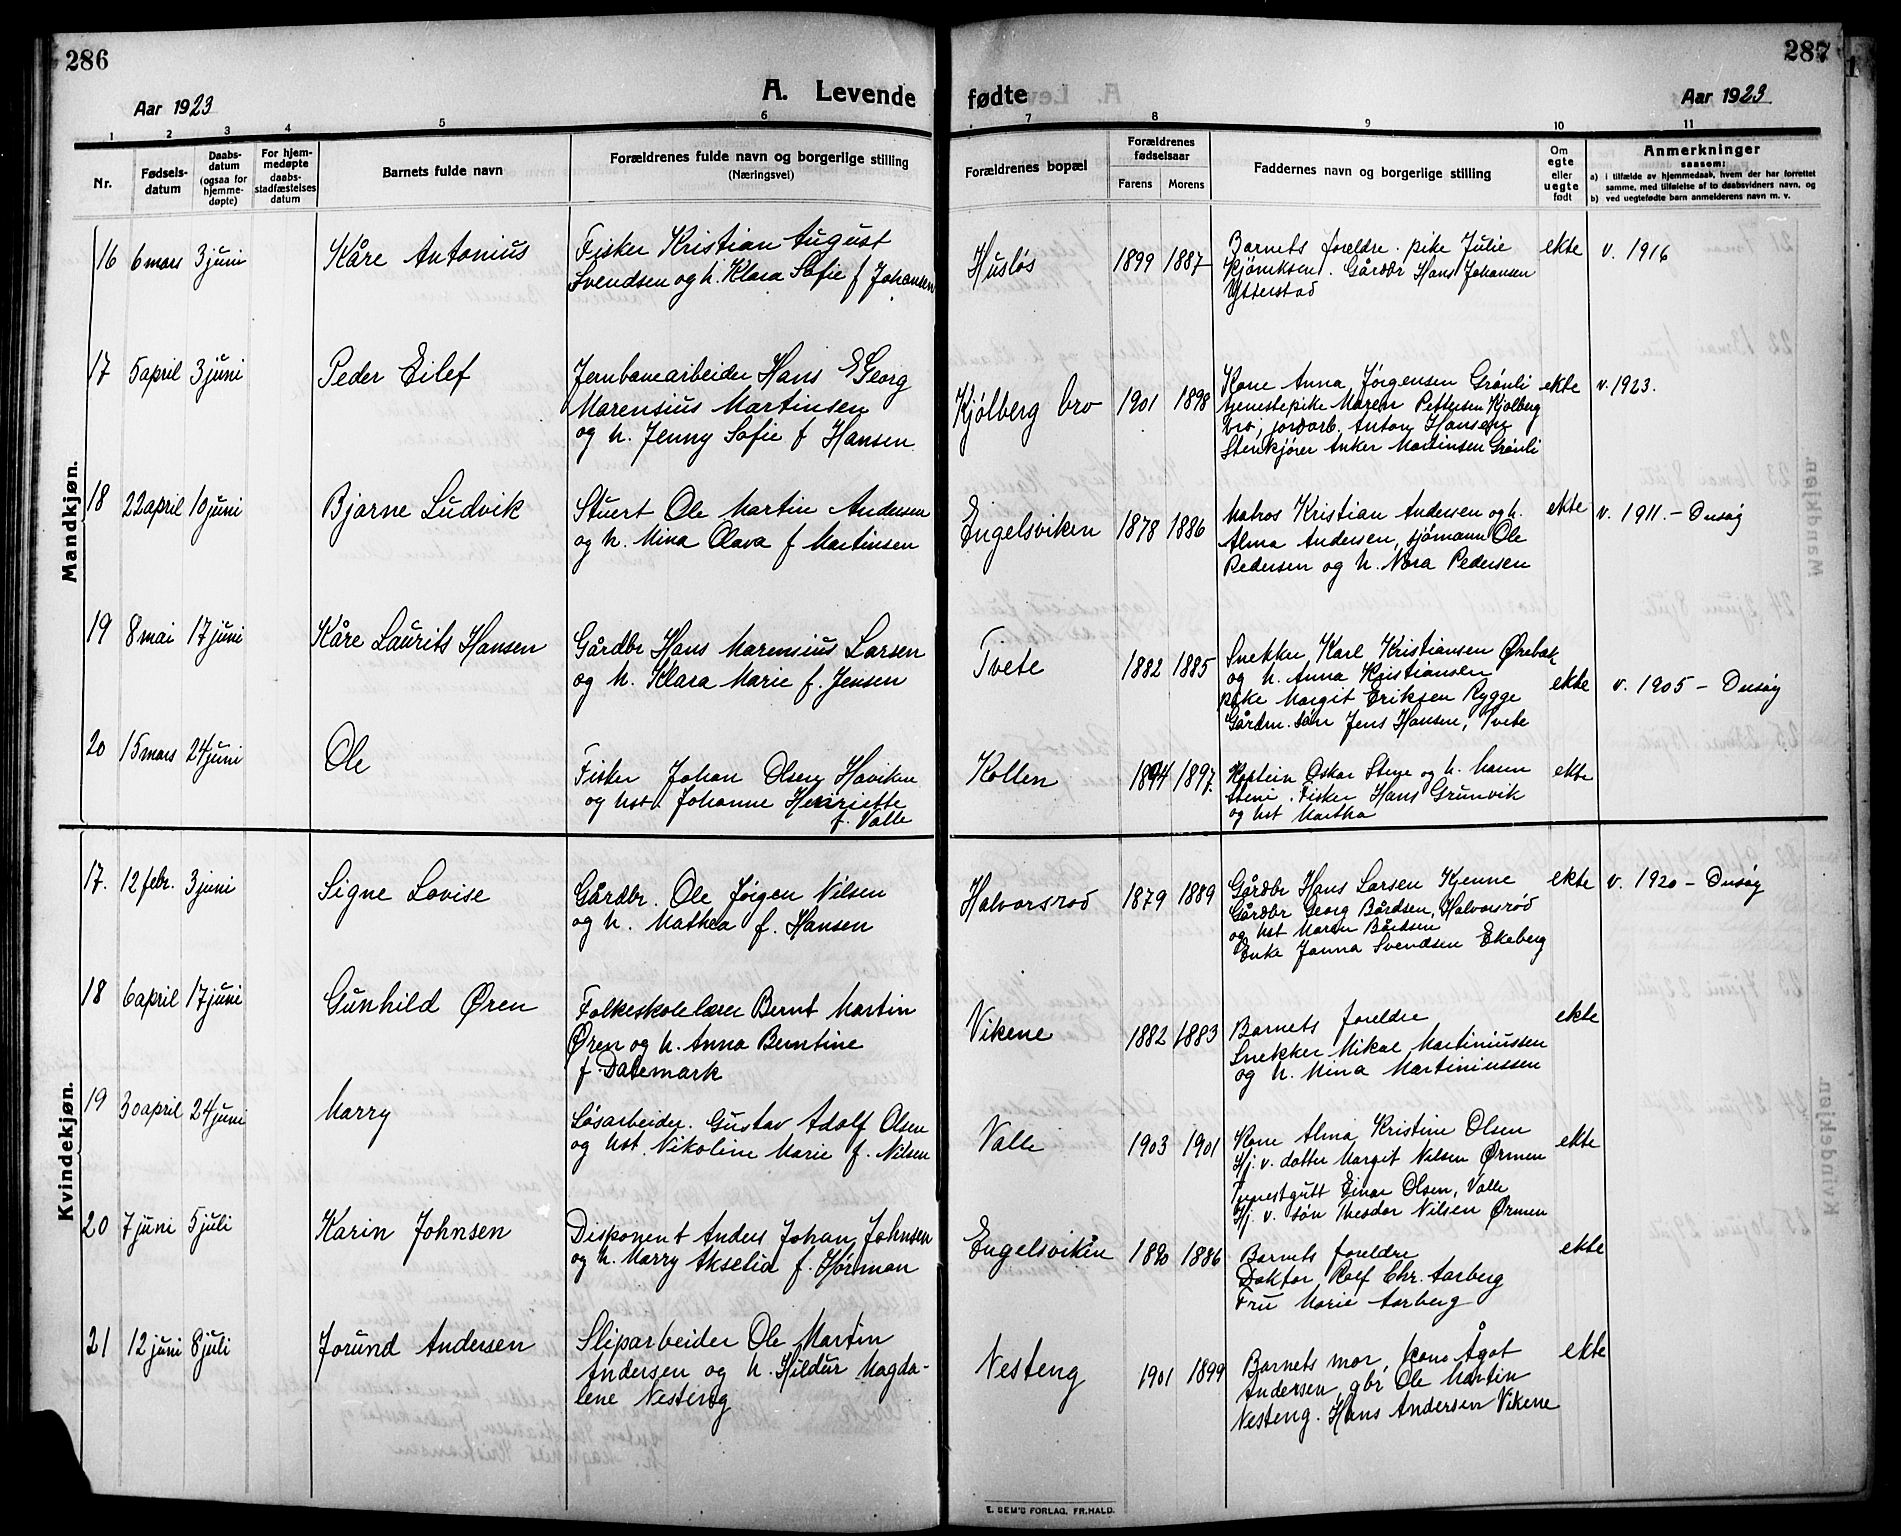 286
Aar 1923
A. Levende
1 2 3 4 5 6
Nr.
Fødsels-
datum
Daabs-
datum
(ogsaa for
hjemme-
døpte)
For hjem-
medøpte
daabs-
stadfæstelses
datum
Barnets fulde navn
Forældrenes fulde navn og borgerlige stilling
(Næringsvei)
Mandkjøn.
16 6 mars 3 juni Kåre Antonius
Fisker Kristian August
Svendsen og h. Klara Sofie f Johansen
17 5 april 3 juni Peder Eilef
Jernbanearbeider Hans Georg
Marensius Martinsen
og h. Jenny Sofie f Hansen
18 22 april 10 juni Bjarne Ludvik
Stuert Ole Martin Andersen
og h. Mina Olava f Martinsen
19 8 mai 17 juni Kåre Laurits Hansen
Gårdbr Hans Marensius Larsen
og h. Klara Marie f. Jensen
20 15 mars 24 juni Ole
Fisker Johan Olsen Haviken
og hst. Johanne Henriette
f. Valle
Kvindekjøn.
17. 12 febr. 3 juni Signe Lovise
Gårdbr. Ole Jörgen Nilsen
og h. Mathea f. Hansen
18 6 april 17 juni Gunhild Øren
Folkeskolelærer Bernt Martin
Øren og h. Anna Berntine
f. Dalemark
19 30 april 24 juni Marry
Løsarbeider. Gustav Adolf Olsen
og hst. Nikoline Marie f. Nilsen
20 7 juni 5 juli Karin Johnsen
Disponent Anders Johan Johnsen
og h. Marry Akselia f. Hörman
21 12 juni 8 juli Jorund Andersen
Sliparbeider Ole Martin
Andersen og h. Hildur Magda-
lene Nesteng
287
fødte
Aar 1923
7 8 9 10 11
Forældrenes bopæl
Forældrenes
fødselsaar
Farens Morens
Faddernes navn og borgerlige stilling
Om
egte
eller
uegte
født
Anmerkninger
saasom:
a) i tilfælde av hjemmedaab, hvem der har forrettet
samme, med tilføielse af to daabsvidners navn, og
b) ved uegtefødte barn anmelderens navn m. v.
Husløs 1899 1887
Barnets foreldre. pike Julie
Kjöniksen. Gårdbr Hans Johansen
Ytterstad
ekte v. 1916
Kjölberg bro 1901 1898
Kone Anna Jörgensen Grönli
tjenestepike Maren Pettersen Kjölberg
bro, jordarb. Anton Hansen
Stenkjörer Anker Martinsen Grönli
ekte v. 1923.
Engelsviken 1878 1886
Matros Kristian Andersen og h.
Alma Andersen, sjömann Ole
Pedersen og h. Nora Pedersen
ekte v. 1911. - Onsøy
Tvete 1882 1885
Snekker Karl Kristiansen Ørebæk
og h. Anna Kristiansen
pike Margit Eriksen Rygge
Gårdm. sön Jens Hansen, Tvete
ekte v. 1905 - Onsøy
Kollen 1894 1897.
Kaptein Oskar Stene og h. hann
Steni. Fisker Hans Grunvik
og hst Martha
ekte
Halvorsrød 1879 1889
Gårdbr Hans Larsen Kjenne
Gårdbr Georg Bårdsen, Halvorsröd
og hst Maren Bårdsen
Enke Janna Svendsen Ekeberg
ekte v. 1920 - Onsøy
Vikene 1882 1883
Barnets foreldre
Snekker Mikal Martiniussen
og h. Mina Martiniussen
ekte
Valle 1903 1901
Kone Alma Kristine Olsen
Hj. v. datter Margit Nilsen Ørmen
Tjenestgutt Einar Olsen, Valle
Hj. v. sön Theodor Nilsen Ørmen
ekte
Engelsviken 1880 1886
Barnets foreldre
Doktor Rolf Chr. Aarberg
Fru Marie Aarberg
ekte
Nesteng 1901 1899
Barnets mor, kone Ågot
Andersen, gbr Ole Martin
Nesteng. Hans Andersen Vikene
ekte
E. SEM'S FORLAG. FR.HALD.